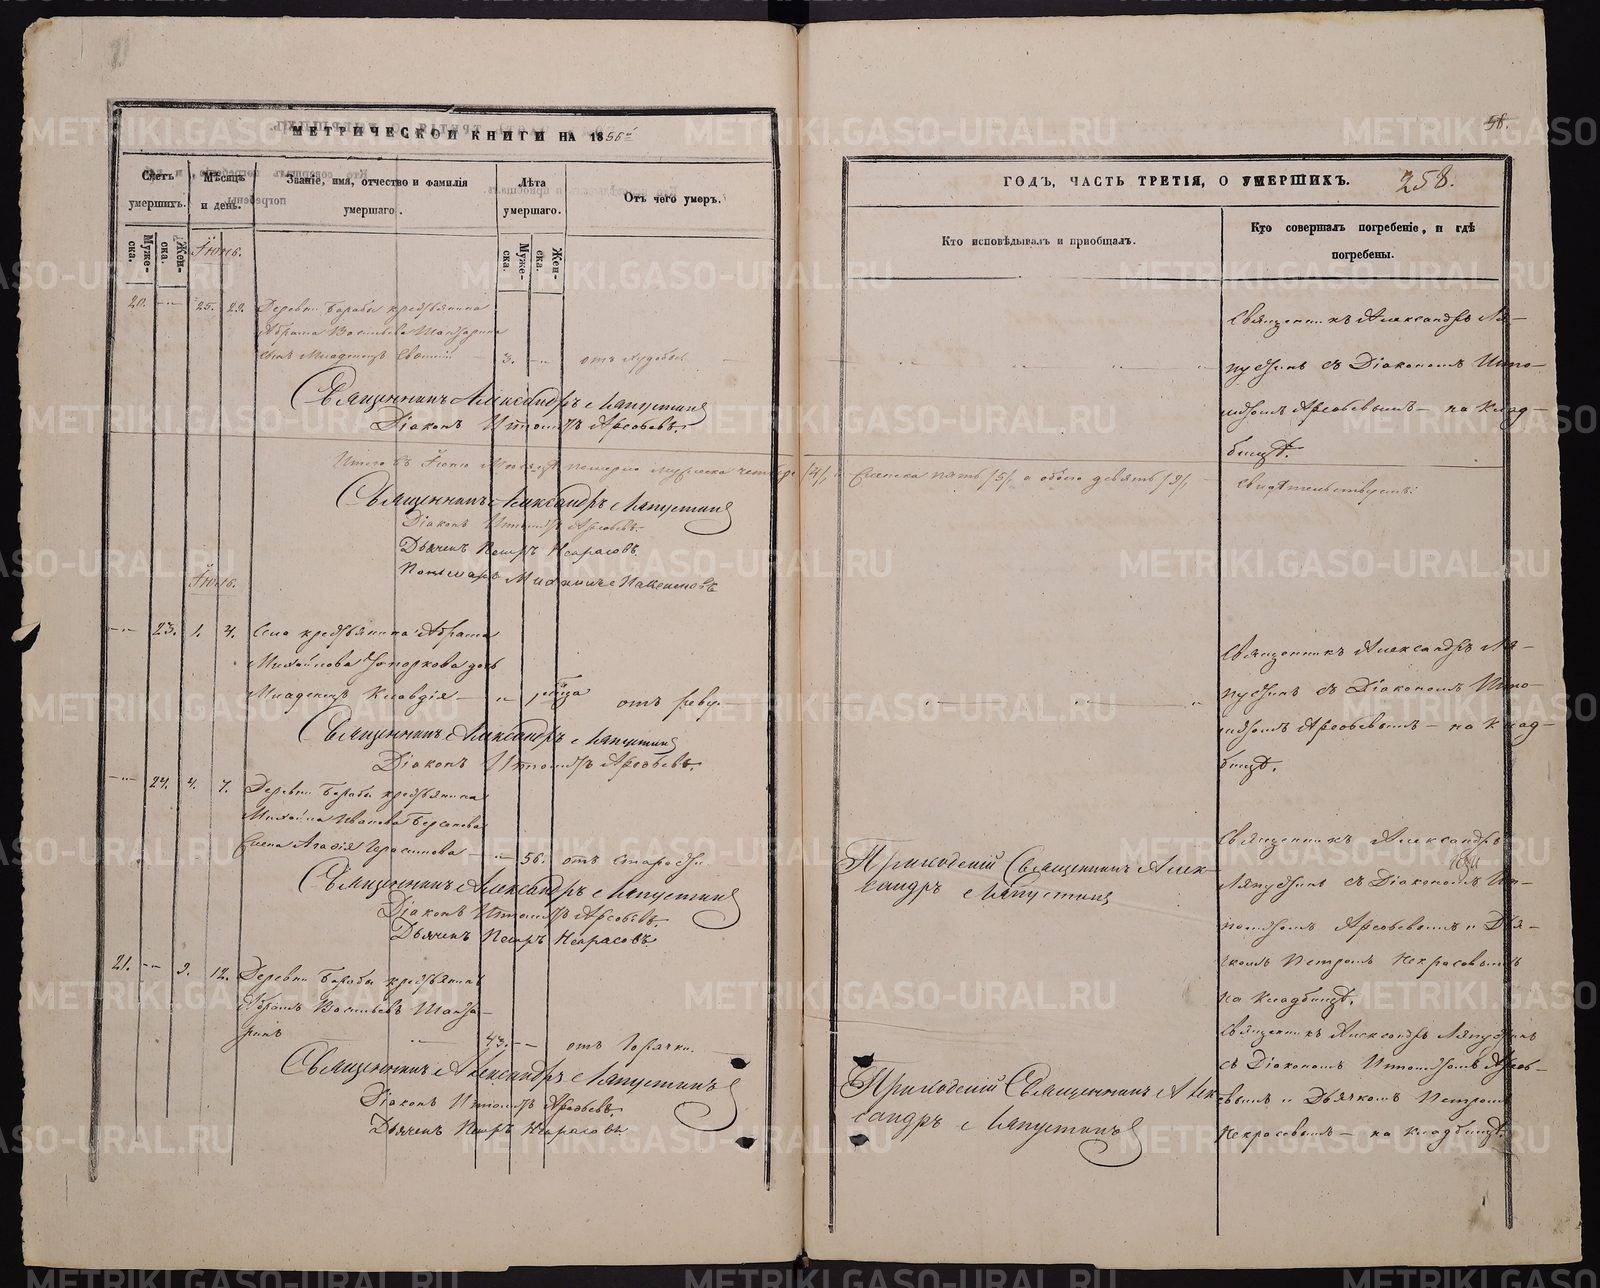 МЕТРИЧЕСКОЙ КНИГИ НА 1856й
Счетъ умершихъ.
Мѣсяцъ и день.
Званіе, имя, отчество и фамилія умершаго.
Лѣта умершаго.
Отъ чего умеръ.
Мужеска.
Женска.
Мужеска.
Женска.
20. 25. 29. Деревни Барабы крестьянина
Абрама Васильева
сынъ младенецъ 3. отъ худобы
Священникъ Александръ Ляпустинъ
Діаконъ Ипполитъ Арсеньевъ.
Итого въ Іюнѣ мѣсяцѣ померло мужеска четыре /4/,
Священникъ Александръ Ляпустинъ
Діаконъ Ипполитъ
Дьячекъ Петръ Некрасовъ.
Пономарь
Іюль.
23. 1. 4. Села крестьянина Абрама
Михайлова Топоркова дочь
Младенецъ Клавдія 1 отъ реву.
Священникъ Александръ Ляпустинъ
Діаконъ Ипполитъ
24. 4. 7. Деревни Барабы крестьянина
Михайла Иванова
жена Агафія Герасимова 56. отъ старости.
Священникъ Александръ Ляпустинъ
Діаконъ Ипполитъ
Дьячекъ Петръ Некрасовъ.
21. 9. 12. Деревни Барабы крестьянинъ
Абрамъ Васильевъ
43. отъ горячки.
Священникъ Александръ Ляпустинъ
Діаконъ Ипполитъ
Дьячекъ Петръ Некрасовъ.
58.
ГОДЪ, ЧАСТЬ ТРЕТІЯ, О УМЕРШИХЪ.
258.
Кто исповѣдывалъ и пріобщалъ.
Кто совершалъ погребеніе, и гдѣ погребены.
Священникъ Александръ Ля-
пустинъ съ Діакономъ Иппо-
литомъ на клад-
бищѣ.
женска пять /5/, а обоего девять /9/,
свидѣтельствуемъ:
Священникъ Александръ Ля-
пустинъ съ Діакономъ Иппо-
литомъ на клад-
бищѣ.
Приходскій Священникъ Алек-
сандръ Ляпустинъ
Священникъ Александръ
Ляпустинъ съ Діакономъ Ип-
политомъ и Дья-
чкомъ Петромъ Некрасовымъ
на кладбищѣ.
Приходскій Священникъ Алек-
сандръ Ляпустинъ
Священникъ Александръ Ляпустинъ
съ Діакономъ Ипполитомъ
и Дьячкомъ Петромъ
Некрасовымъ на кладбищѣ.
METRIKI.GASO-URAL.RU